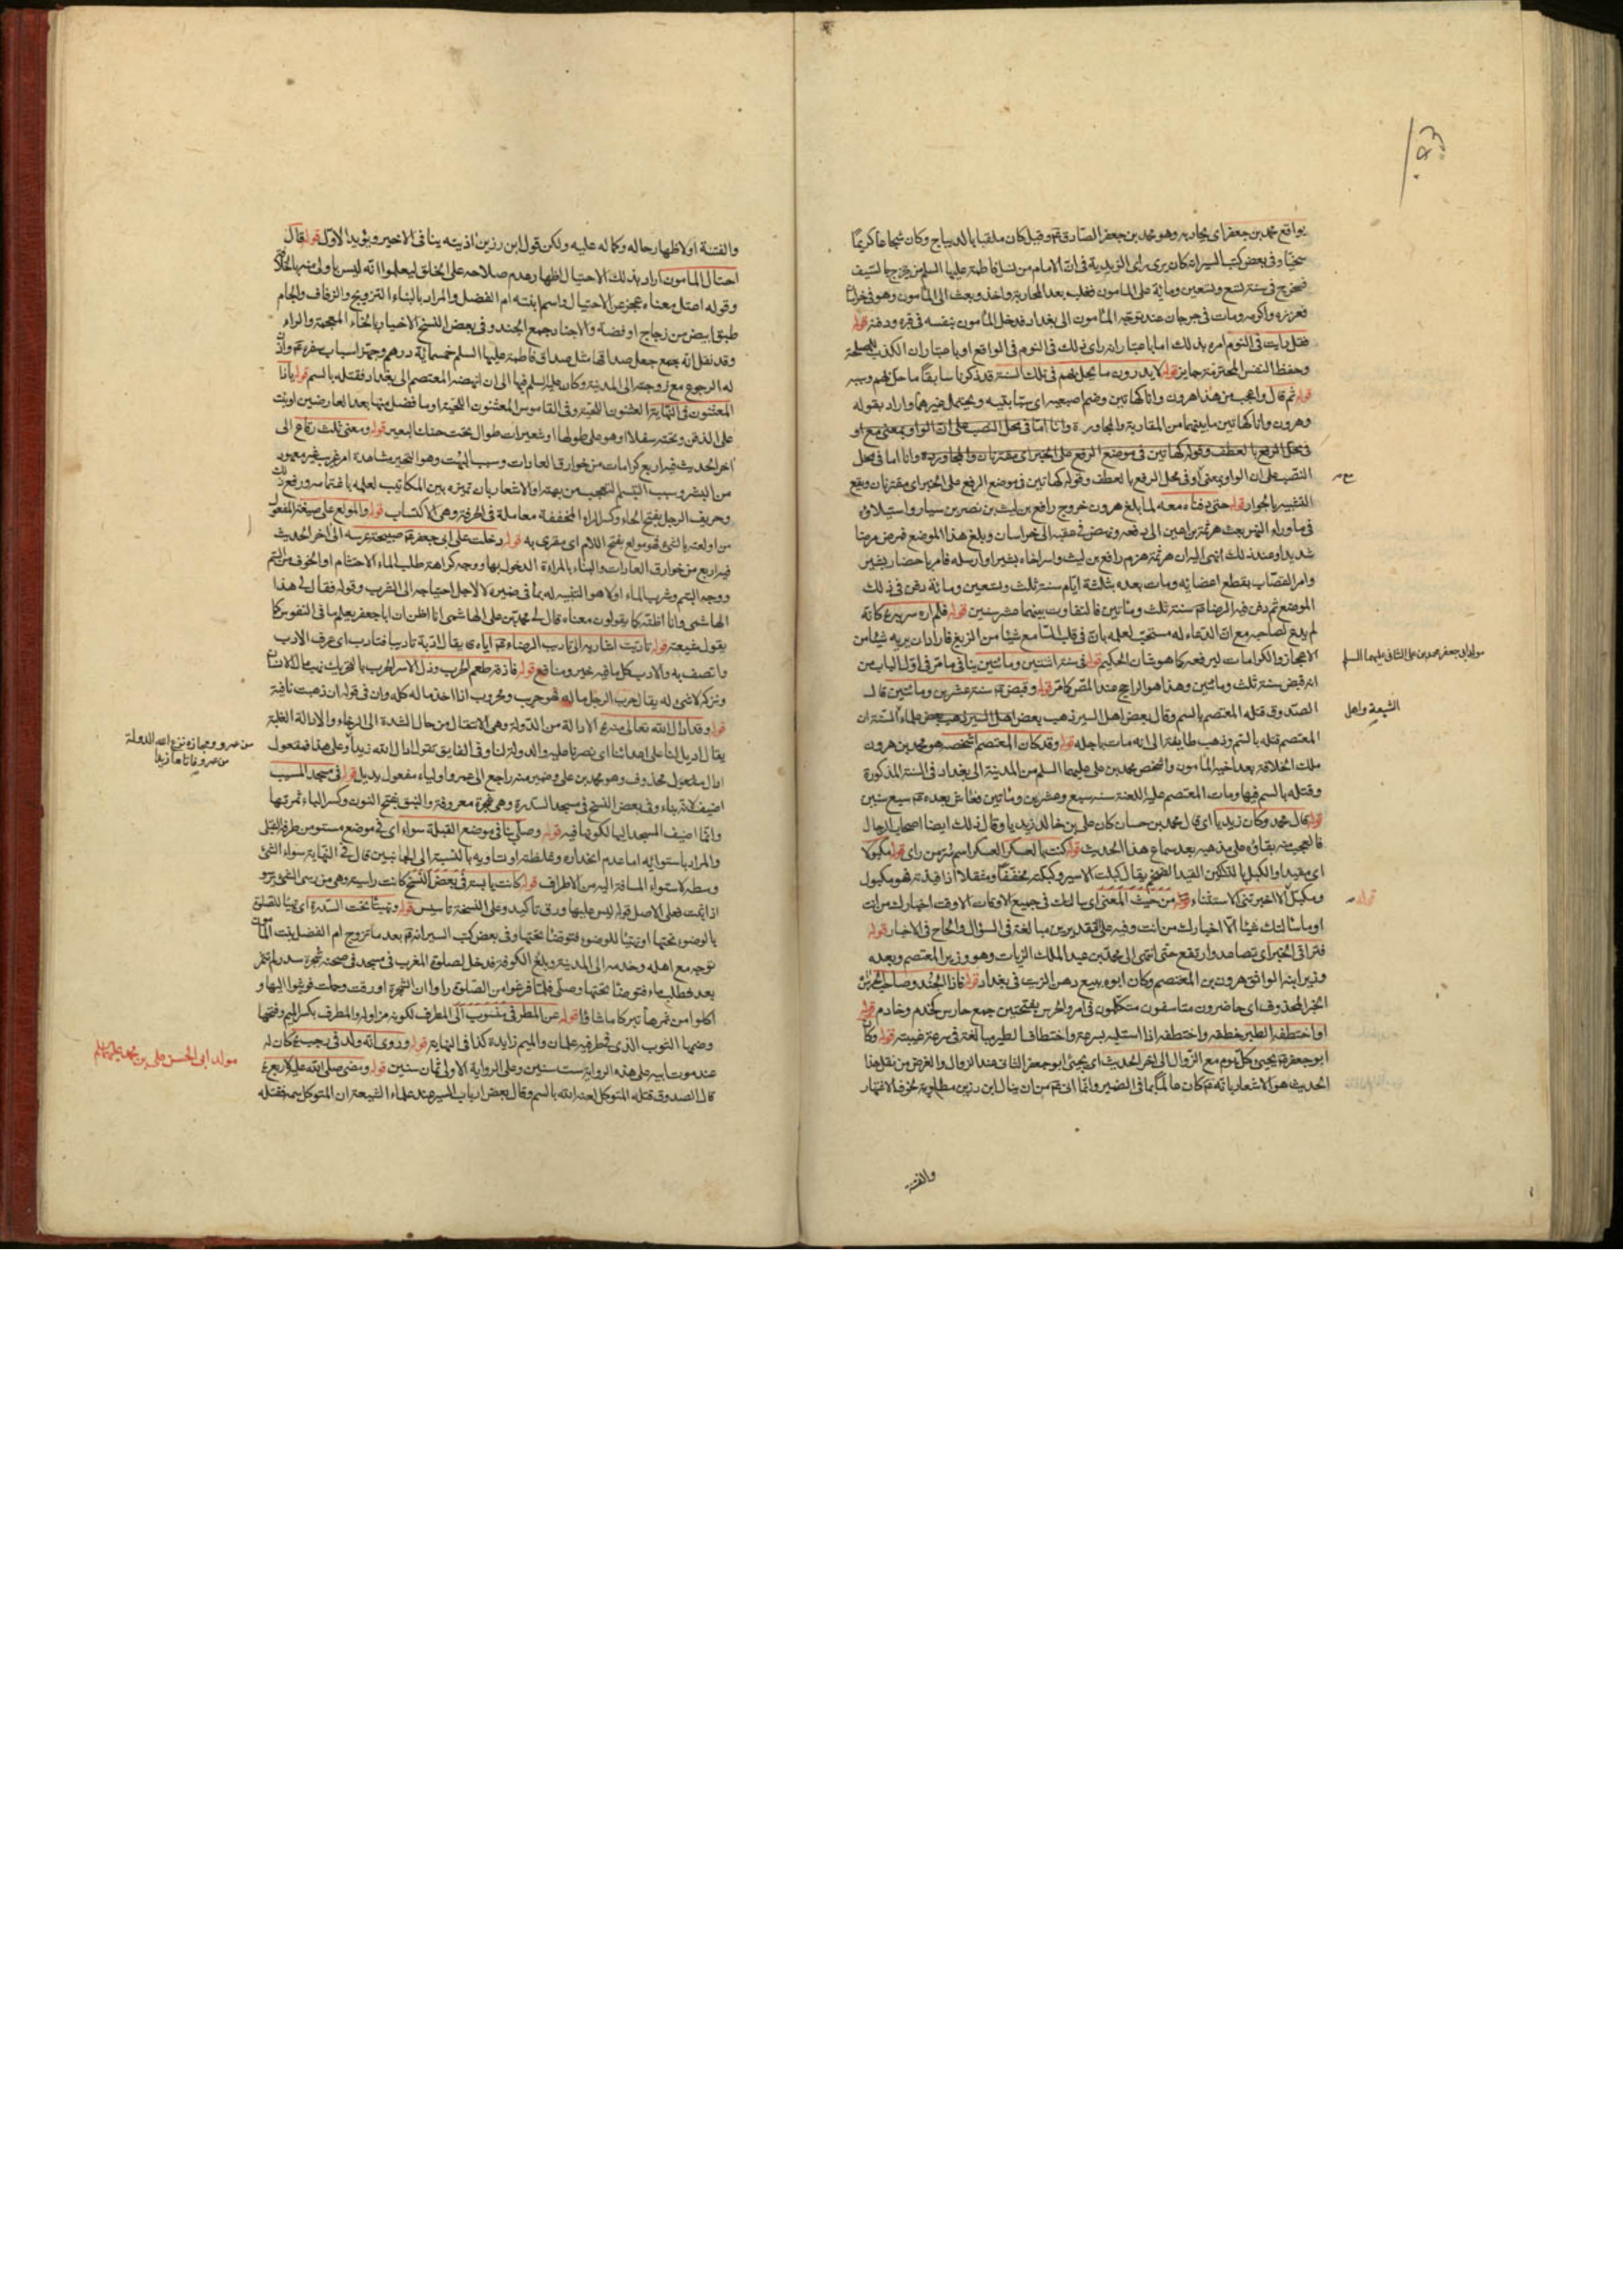 يواقع محمد بن جعفر اى يحاربه وهو محمد بن جعفر الصادق وقيل كان ملقبا بالديباج وكان شجاعا كريما
سخيا وفى بعض كتب السير انه كان يرى راى الزيدية فى ان الامام من نسل فاطمة عليها السلم من يخرج بالسيف
فخرج فى سنة تسع وتسعين ومائة على المامون فغلب بعد المحاربة واخذ وبعث الى المأمون وهو فى خراسان
فعززه واكرمه ومات فى جرجان عند توجه المأمون الى بغداد فدخل المأمون بنفسه فى قبره ودفنه قوله
فقل رايت فى النوم امره بذلك اما باعتبار انه راى ذلك فى النوم فى الواقع او باعتبار ان الكذب للمصلحة
وحفظ النفس المحترمة جايز قوله لا يدرون ما يحل بهم فى تلك السنة قد ذكرنا سابقا ما حل بهم وسببه
قوله ثم قال واعجب من هذا هرون وانا كهاتين وضم اصبعيه اى سبابتيه ويحتمل غيرهما واراد بقوله
وهرون وانا كهاتين ما بينهما من المقاربة والمجاورة وانا اما فى محل النصب على ان الواو بمعنى مع او
فى محل الرفع بالعطف وقوله كهاتين فى موضع الرفع على الخبر اى مقترنان والمجاورة وانا اما فى محل
النصب على ان الواو بمعنى او فى محل الرفع بالعطف وقوله كهاتين فى موضع الرفع على الخبر اى مقترنان وقع
التفسير بالجوار قوله حتى دفناه معه لما بلغ هرون خروج رافع بن ليث بن نصر بن سيار واستيلاؤه
فى ماوراء النهر بعث هرثمة بن اعين الى دفعه ونهض فى عقبه الى خراسان وبلغ هذا الموضع فمرض مرضا
شديدا وعند ذلك انهى اليه ان هرثمة هزم رافع بن ليث واسر اخاه بشيرا وارسله فامر باحضار بشير
وامر القصاب بقطع اعضائه ومات بعده بثلثة ايام سنة ثلث وتسعين ومائة دفن فى ذلك
الموضع ثم دفن فيه الرضا سنة ثلث ومائتين فالتفاوت بينهما عشر سنين قوله فلم اره سر بذلك كانه
لم يدع لصاحبه مع ان الدعاء له مستحب لعلمه بان فى قلب السامع شيئا من الزيغ فاراد ان يريه شيئا من
الاعجاز والكرامات ليرفعه كما هو شان الحكيم قوله فى سنة اثنتين ومائتين ينافى ما مر فى اول الباب من
انه قبض سنة ثلث ومائتين وهذا هو الراجح عند المص كما مر قوله وقبض سنة عشرين ومائتين قال
الصدوق قتله المعتصم بالسم وقال بعض اهل السير ذهب بعض علماء السنة ان
المعتصم قتله بالسم وذهب طايفة الى انه مات باجله قوله وقد كان المعتصم اشخصه هو محمد بن هرون
ملك الخلافة بعد اخيه المأمون واشخص محمد بن على عليهما السلم من المدينة الى بغداد فى السنة المذكورة
وقتله بالسم فيها ومات المعتصم عليه اللعنة سنة سبع وعشرين ومائتين فعاش بعده سبع سنين
قوله قال محمد وكان زيديا اى قال محمد بن حسان كان على بن خالد زيديا وقال ذلك ايضا اصحاب الرجال
فالعجب منه بقاؤه على مذهبه بعد سماع هذا الحديث قوله كنت بالعسكر العسكر اسم سر من راى قوله مكبولا
اى مقيدا والكبل بالتسكين القيد الضخم يقال كبلت الاسير وكبلته مخففا ومثقلا اذا قيدته فهو مكبول
ومكبل الا اخبرتنى الاستثناء من حيث المعنى اى سالتك فى جميع الاوقات الا وقت اخبارك من انت
او ما سالتك شيئا الا اخبارك من انت وفيه على التقديرين مبالغة فى السؤال والحاح فى الاخبار قوله
فتراقى الخبر اى تصاعد وارتفع حتى انتهى الى محمد بن عبد الملك الزيات وهو وزير المعتصم وبعده
وزير ابنه الواثق هرون بن المعتصم وكان ابوه يبيع دهن الزيت فى بغداد قوله فاذا الجند وصاحب الحرس
الخبر المحذوف اى حاضرون متاسفون متكلمون فى امره والحرس بفتحتين جمع حارس كخدم وخادم قوله
او اختطفه الطير خطفه واختطفه اذا استلبه بسرعة واختطاف الطير مبالغة فى سرعة غيبته قوله وكان
ابو جعفر يجيئ كل يوم مع الزوال الى اخر الحديث اى يجيئ ابو جعفر الثانى عند الزوال والغرض من نقل هذا
الحديث هو الاشعار بانه كان عالما بما فى الضمير وانما ابى من ان ينال ابن رزين مطلوبه لخوف الاشتهار
والفتنة
مولد ابى جعفر محمد بن على الثانى عليهما السلم
الشيعة واهل
قوله
والفتنة او لاظهار حاله وكماله عليه ولكن قول ابن رزين اذيته ينافى الاخير ويؤيد الاول قوله قال
احتال المامون اراد بذلك الاحتيال اظهار عدم صلاحه على الخلق ليعلموا انه ليس باولى منه بالخلافة
وقوله اعتل معناه عجز عن الاحتيال واسم ابنته ام الفضل والمراد بالبناء التزويج والزفاف والجام
طبق ابيض من زجاج او فضة والاجناد جمع الجند وفى بعض النسخ الاخيار بالخاء المعجمة والراء
وقد نقل انه جعل صداقها مثل صداق فاطمة عليها السلم خمسمائة درهم وجهز اسباب سفره واذن
له الرجوع مع زوجته الى المدينة وكان عليه السلم فيها الى ان انهضه المعتصم الى بغداد فقتله بالسم قوله يا ذا
العثنون فى النهاية العثنون اللحية وفى القاموس العثنون اللحية او ما فضل منها بعد العارضين او نبت
على الذقن وتحته سفلا او هو على طولها او شعيرات طوال تحت حنك البعير قوله ومعى ثلث رقاع الى
اخر الحديث فيه اربع كرامات من خوارق العادات وسبب البهت وهو التحير مشاهدة امر غريب غير معهود
من البشر وسبب التبسم التعجب من بهته او الاشعار بان تميزه بين المكاتيب لعلمه باغتمامه ورفع ذلك
وحريف الرجل بفتح الحاء وكسر الراء المخففة معاملة فى الحرفة وهى الاكتساب قوله والمولع على صيغة المفعول
من اولعته بالشئ فهو مولع بفتح اللام اى مغرى به قوله دخلت على ابى جعفر صبيحة عرسه الى اخر الحديث
فيه اربع من خوارق العادات والبناء بالمرأة الدخول بها ووجه كراهة طلب الماء الاحتشام او الخوف من السم
ووجه التبسم وشرب الماء اولا هو التنبيه له بما فى ضميره لا لاجل احتياجه الى الشرب وقوله فقال لى هذا
الهاشمى وانا اظنه كما يقولون معناه قال لى محمد بن على الهاشمى انا اظن ان ابا جعفر يعلم ما فى النفوس كما
يقول شيعته
واتصف به والادب كل ما فيه خير ومنافع قوله فاذقه طعم الحرب وذل الاسر الحرب بالتحريك نهب مال الانسان
وتركه لا شئ له يقال حرب الرجل ماله فهو حريب ومحروب اذا اخذ ماله كله وان فى قوله ان ذهبت نافية
قوله وقد ادال الله تعالى منه الادالة من الدولة وهى الانتقال من حال الشدة الى الرخاء والادالة الغلبة
يقال اديل لنا على اعدائنا اى نصرنا عليهم والدولة لنا وفى الفايق تقول ادال الله زيدا وعلى هذا فمفعول
ادال مفعول محذوف وهو محمد بن على وضمير منه راجع الى عمر واولياء مفعول بديل قوله فى مسجد المسيب
اضيف لانه بناه وفى بعض النسخ فى مسجد السدرة وهى شجرة معروفة والنبق بفتح النون وكسر الباء ثمرتها
وانما اضيف المسجد اليها لكونها فيه قوله وصلى بنا فى موضع القبلة سواء اى فى موضع مستو من طرف القبلى
والمراد باستوائه اما عدم انحداره وغلظته او تساويه بالنسبة الى الجانبين قال فى النهاية سواء الشئ
وسطه لاستواء المسافة اليه من الاطراف قوله كانت يابسة فى بعض النسخ كانت راسية وهى من رسى الشئ يرسو
اذا ثبت فعلى الاصل قوله ليس عليها ورق تاكيد وعلى النسخة تاسيس قوله وتهيأ تحت السدرة اى تهيأ للصلوة
بالوضوء تحتها او تهيأ للوضوء فتوضأ تحتها وفى بعض كتب السير انه بعد ما تزوج ام الفضل بنت المامون
توجه مع اهله وخدمه الى المدينة وبلغ الكوفة فدخل لصلوة المغرب فى مسجد فى صحنه شجرة سدر لم تثمر
بعد فطلب ماء فتوضأ تحتها وصلى فلما فرغوا من الصلوة راوا ان الشجرة اورقت وحملت فرغبوا اليها و
اكلوا من ثمرها تبركا ما شاؤا قوله عن المطرفى منسوب الى المطرف لكونه مزاوله والمطرف بكسر الميم وفتحها
وضمها الثوب الذى فى طرفيه علمان والميم زايدة كذا فى النهاية قوله وروى انه ولد فى رجب كان له
عند موت ابيه على هذه الرواية ست سنين وعلى الرواية الاولى ثمان سنين قوله ومضى صلى الله عليه لاربع
قال الصدوق قتله المتوكل لعنه الله بالسم وقال بعض ارباب السير عند علماء الشيعة ان المتوكل سمه فقتله
من عمرو ومجازه نزع الله الدولة
من عمرو فاتاها زيدا
مولد ابى الحسن على بن محمد عليهما السلم